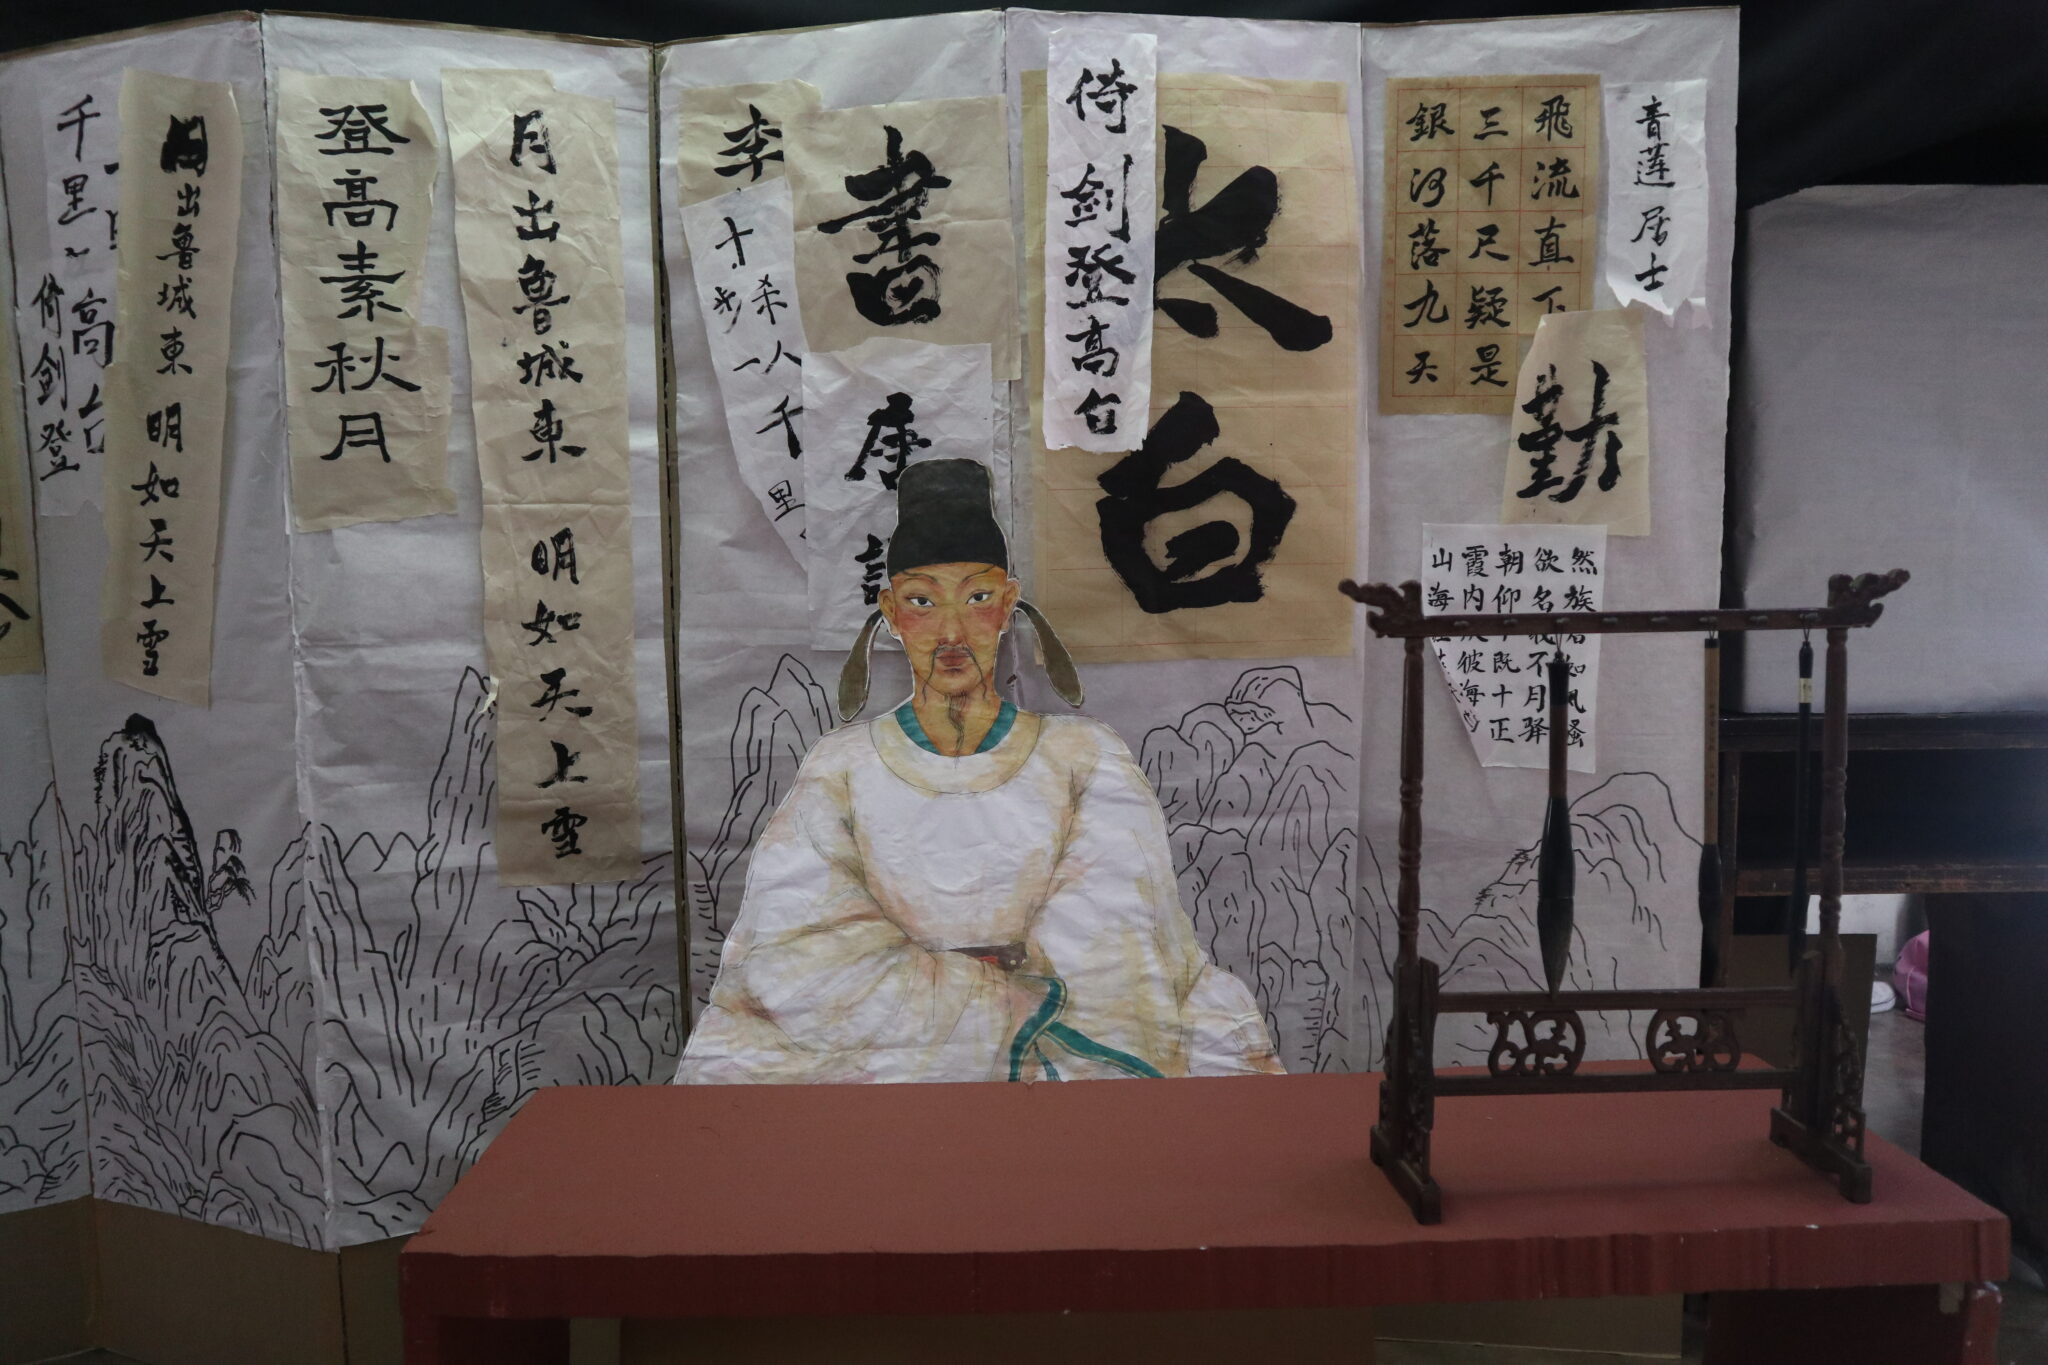 青莲居士
飛流直下
三千尺疑是
銀河落九天
勤
然族
欲名不月
朝仰既十正
霞内彼海
山海
太白
倚剑登高台
書
唐
李
十步杀一人
千里
月出魯城東 明如天上雪
登高素秋月
月出魯城東 明如天上雪
千里
高台
倚剑登